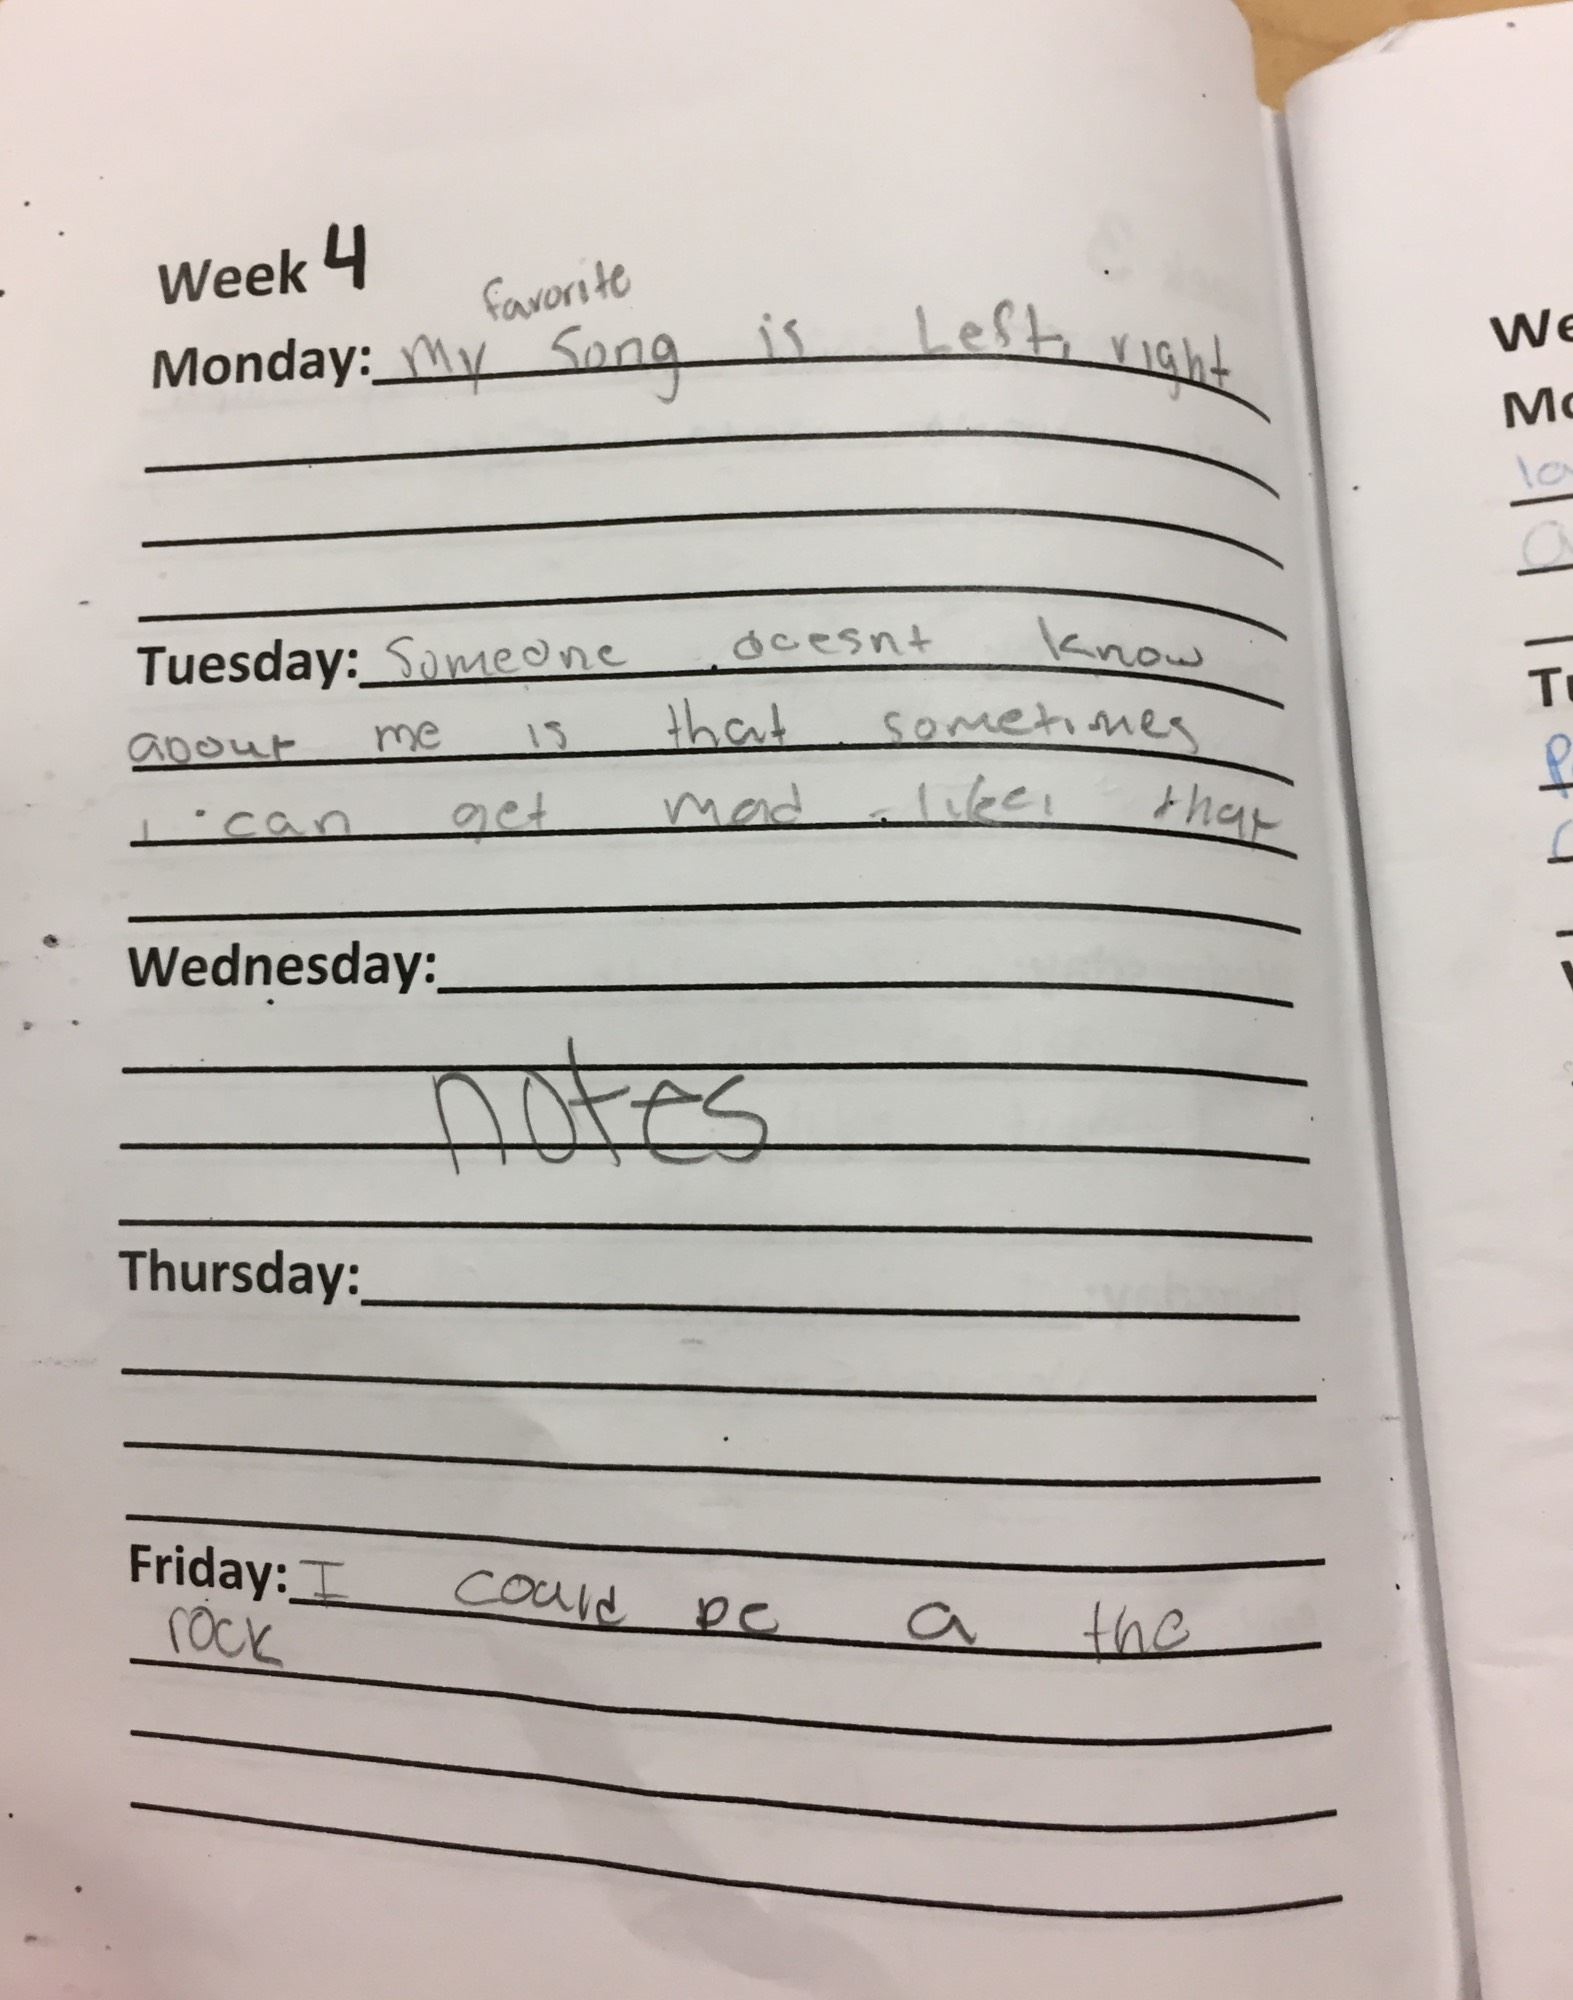 Week 4
favorite
Monday: my song is Left, right
Tuesday: Someone doesnt know
about me is that sometimes
i can get mad like that
Wednesday:
notes
Thursday:
Friday: I could be a the
rock
We
Mo
lo
a
Tu
P